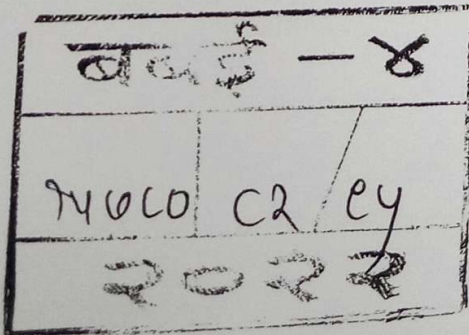 बबई - ४
१५७८० ८२ / ९५
२०२२